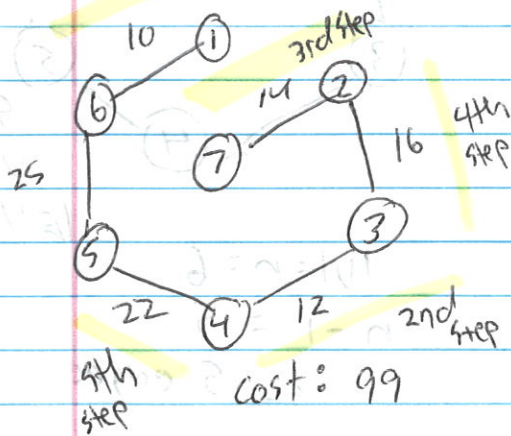 10 1 3rd step
6 14 2
7 16 4th step
25
5 3
22 4 12 2nd step
5th step cost: 99